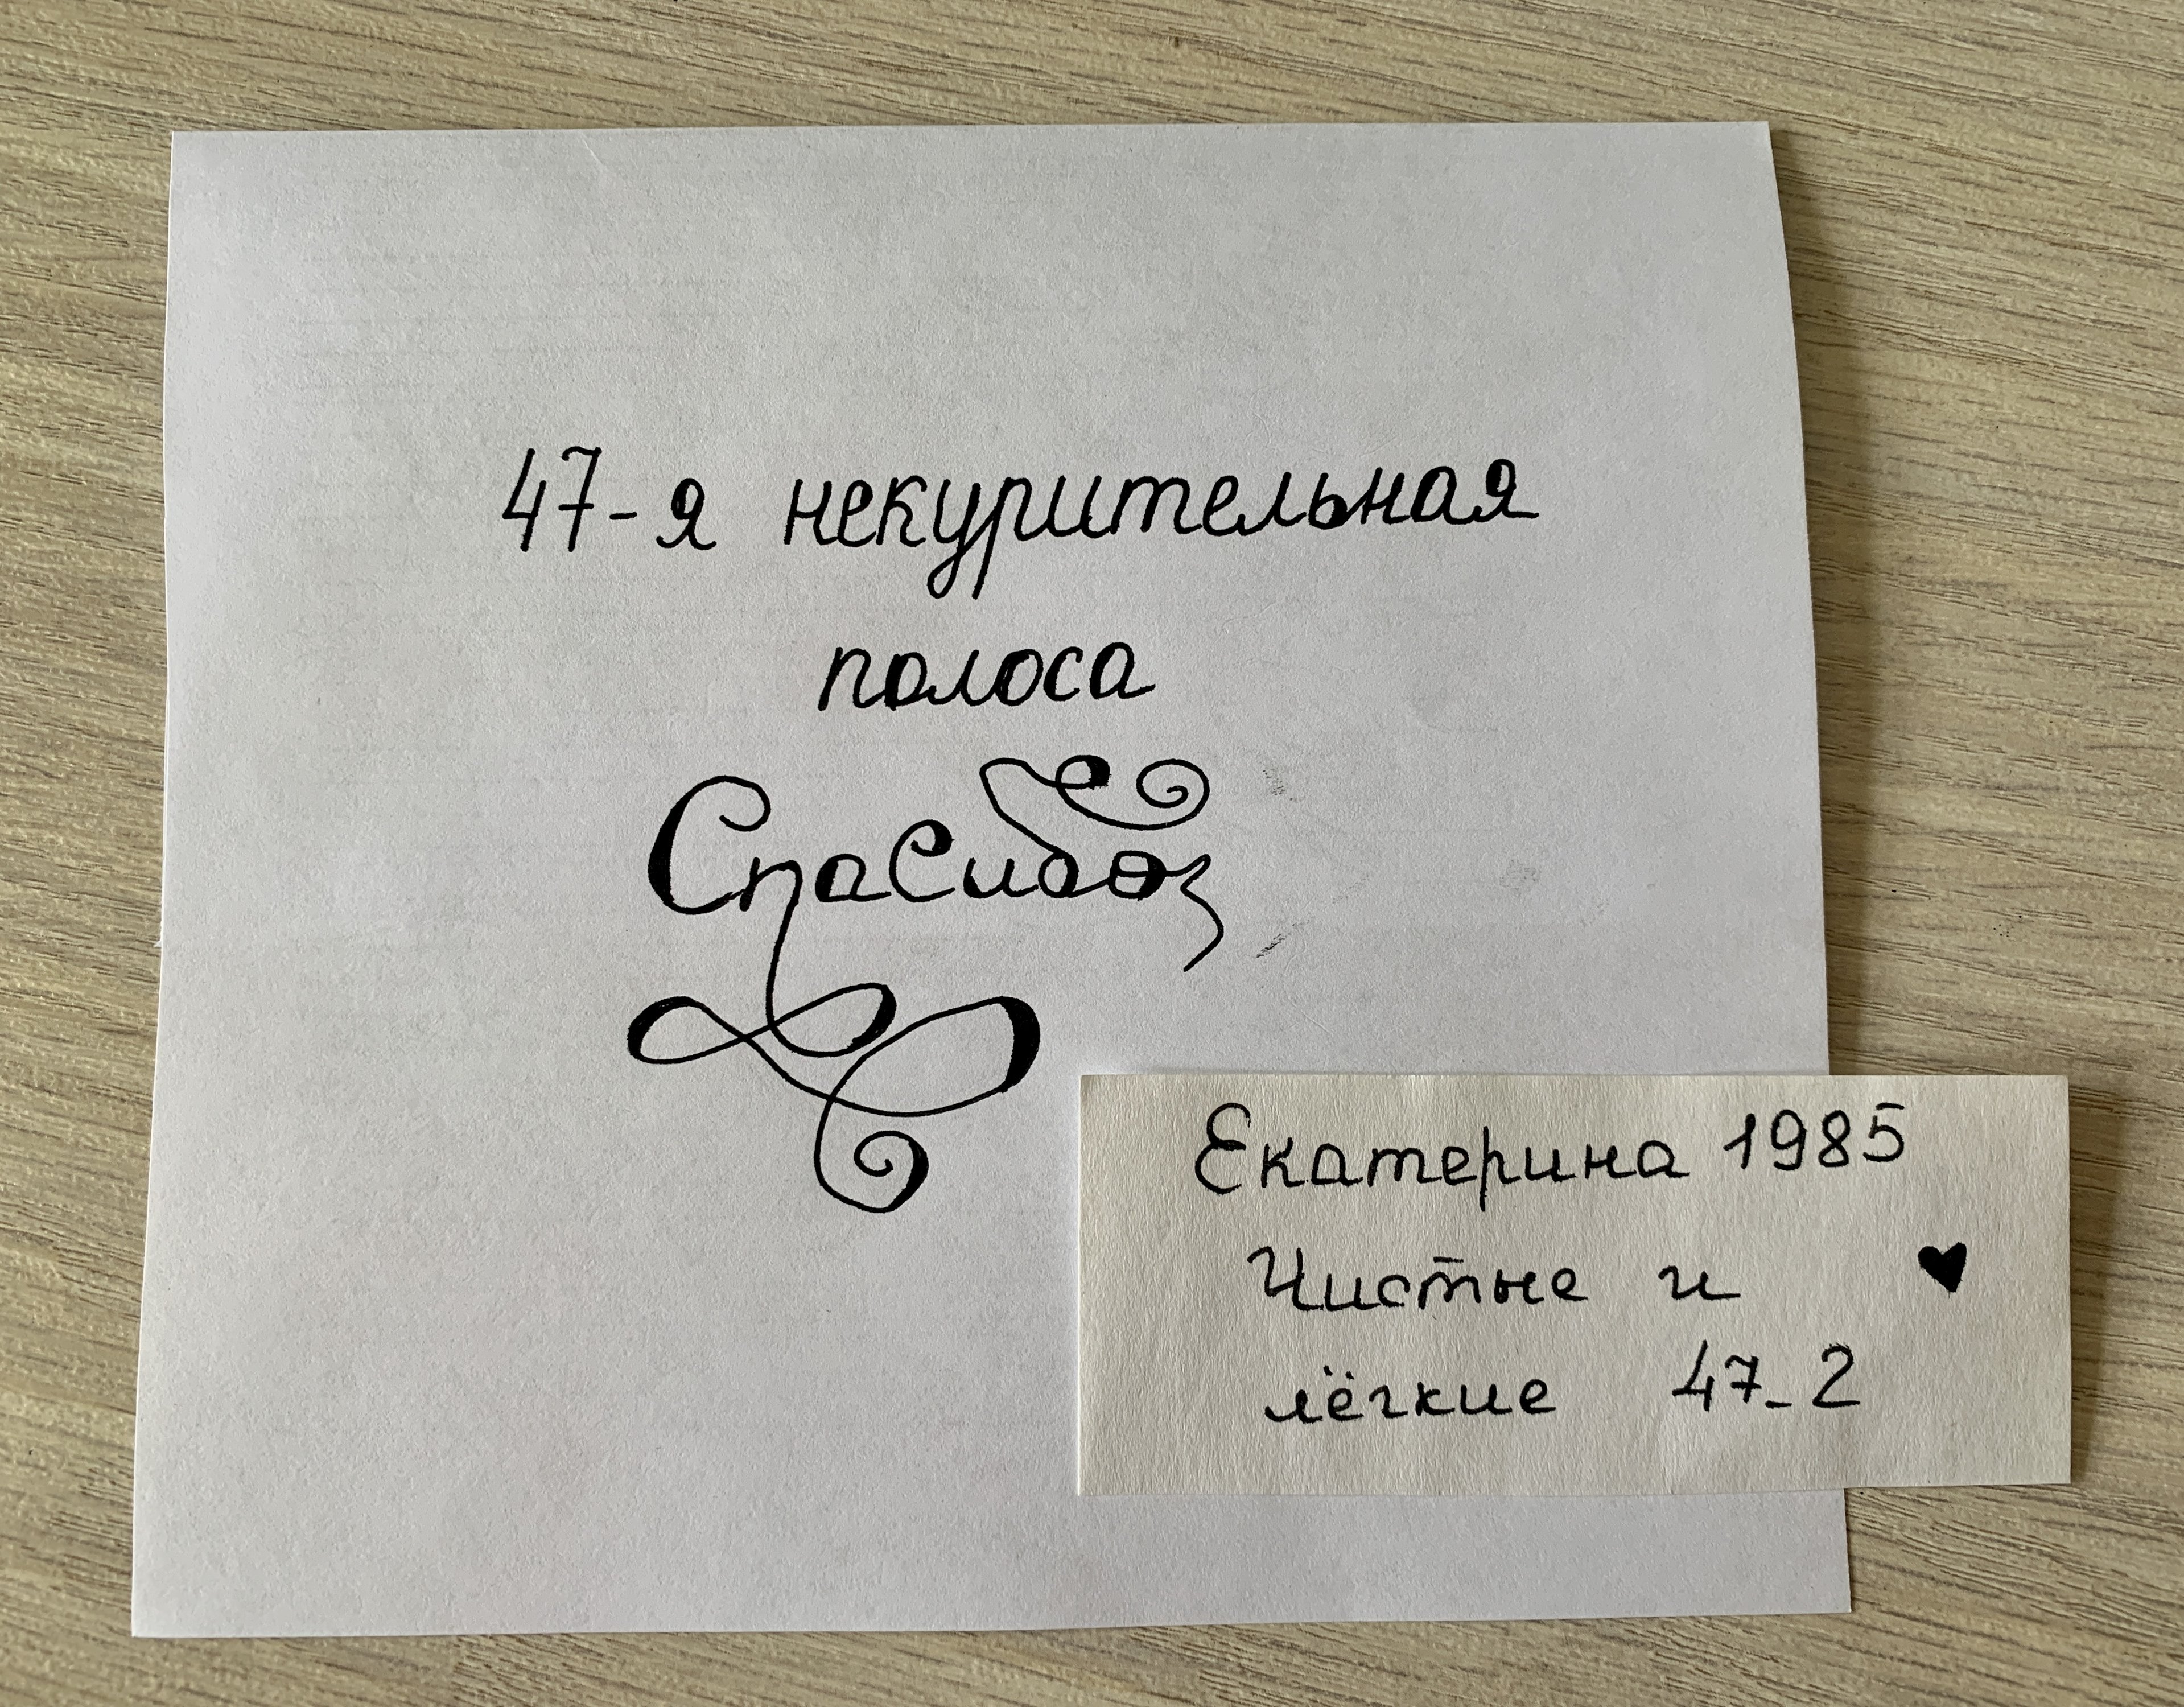 47-я некурительная
полоса
Спасибо
Екатерина 1985
Чистые и ♥
лёгкие 47-2